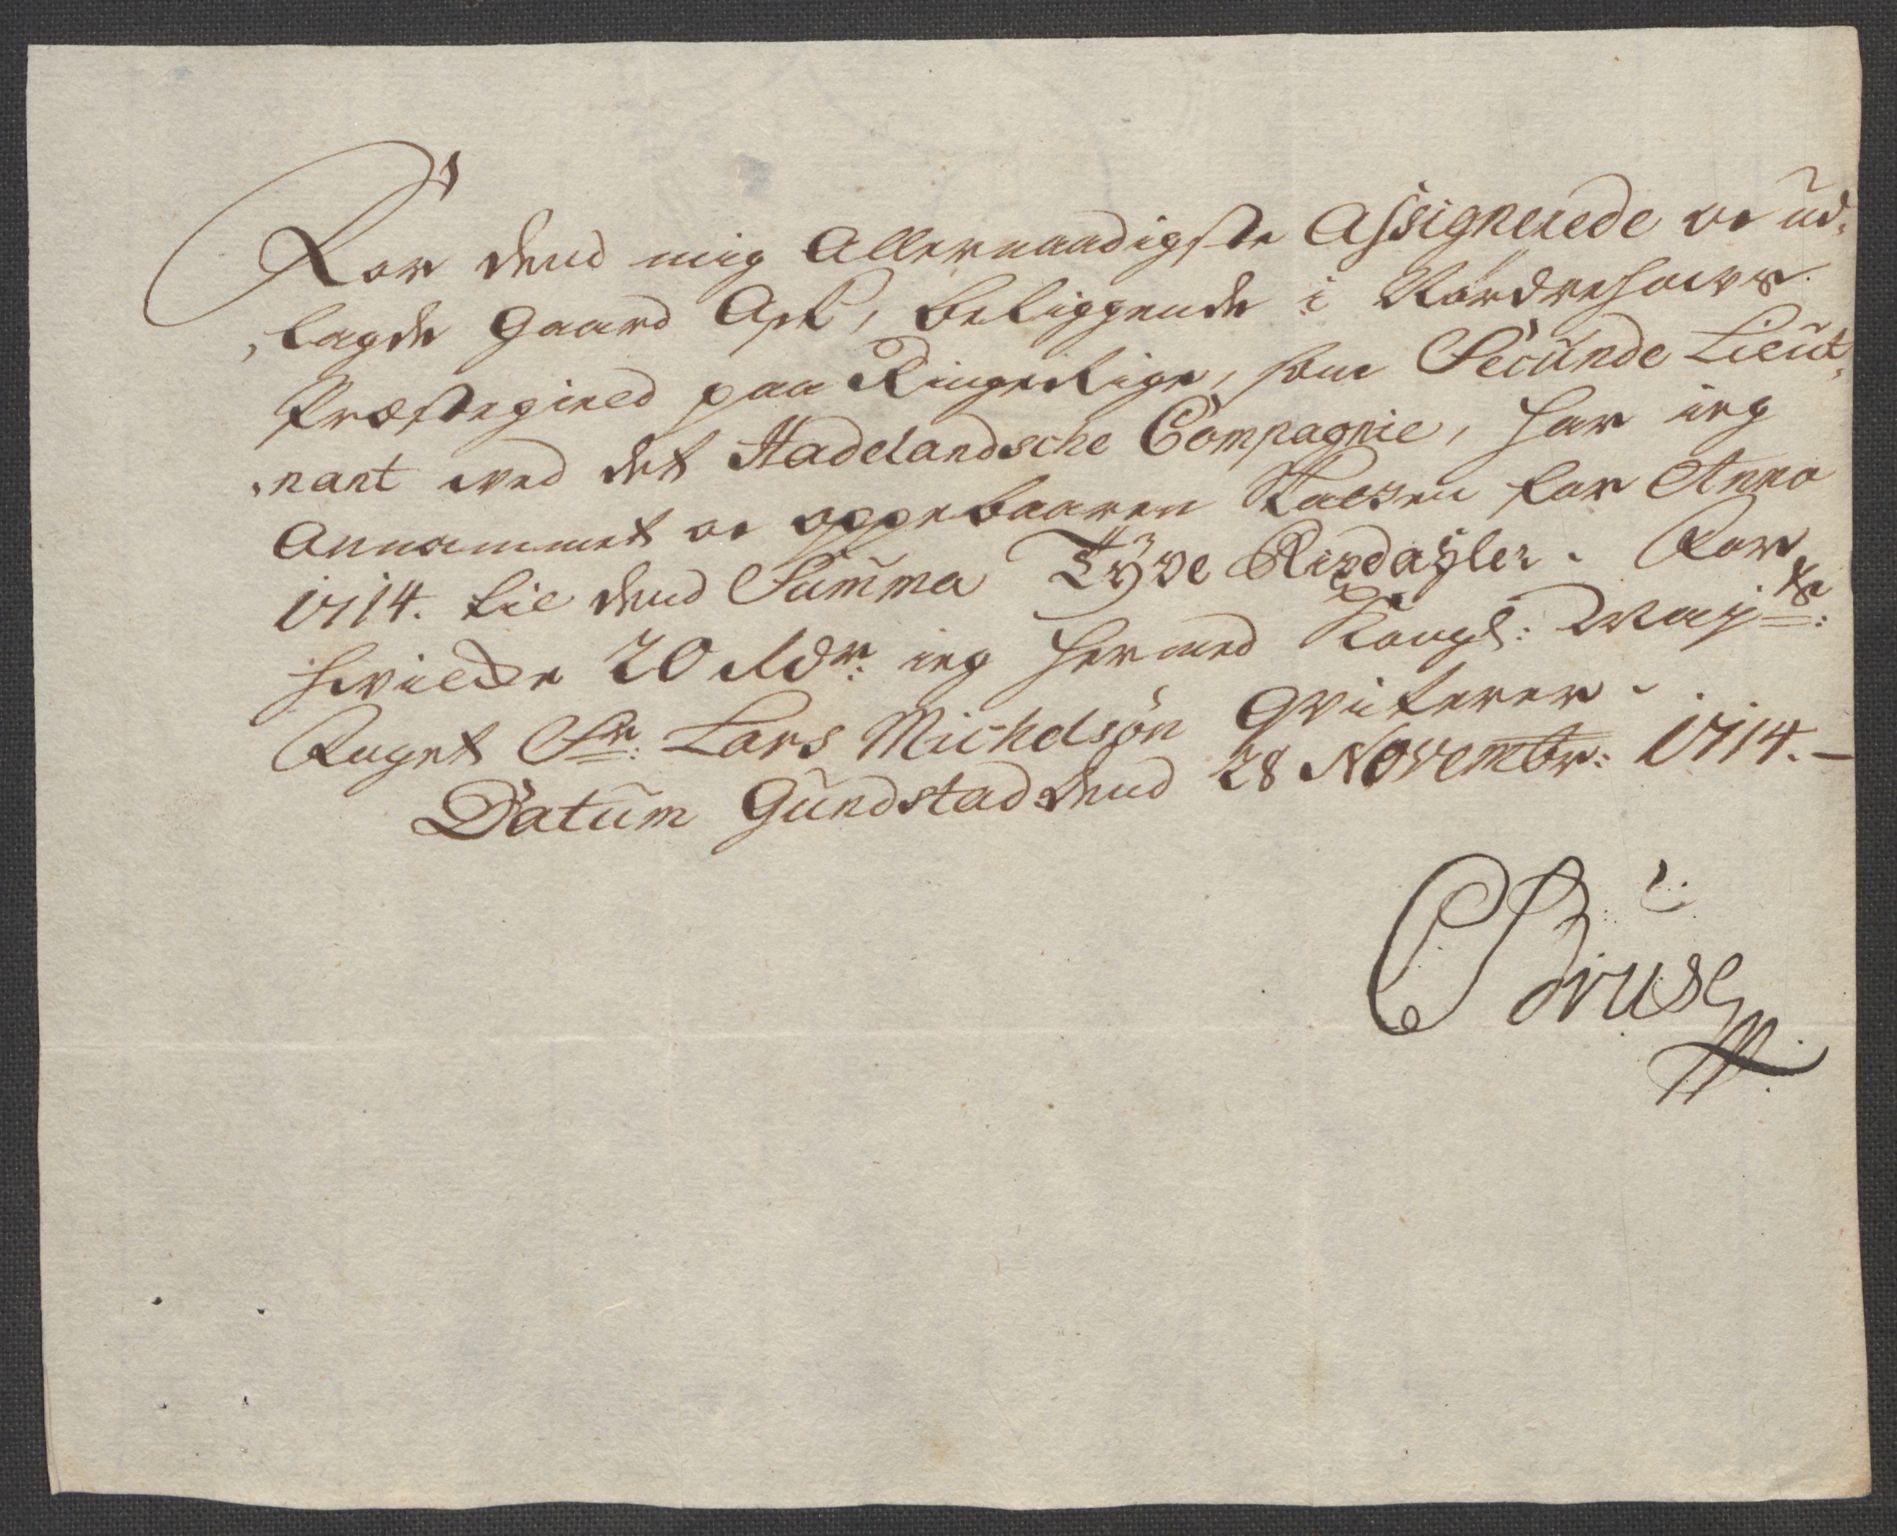 For dend mig Allernaadigste Assignerede oc ud,
,lagde Gaard Ask, beliggende i Nordrehows
Præstegield paa Ringerige, som Secunde Lieut,
,nant wed det Hadelandsche Compagnie, har ieg
Annammet oc oppebaaren Skatten for Anno
1714. til dend Summa Tÿve Rixdaÿler. For
hvilcke 20 Rdr: ieg hermed Kongl: Maÿts:
Foget Sr: Lars Michelsøn Qviterer.
Datum Gundstad dend 28 Novembr: 1714.
CBruse